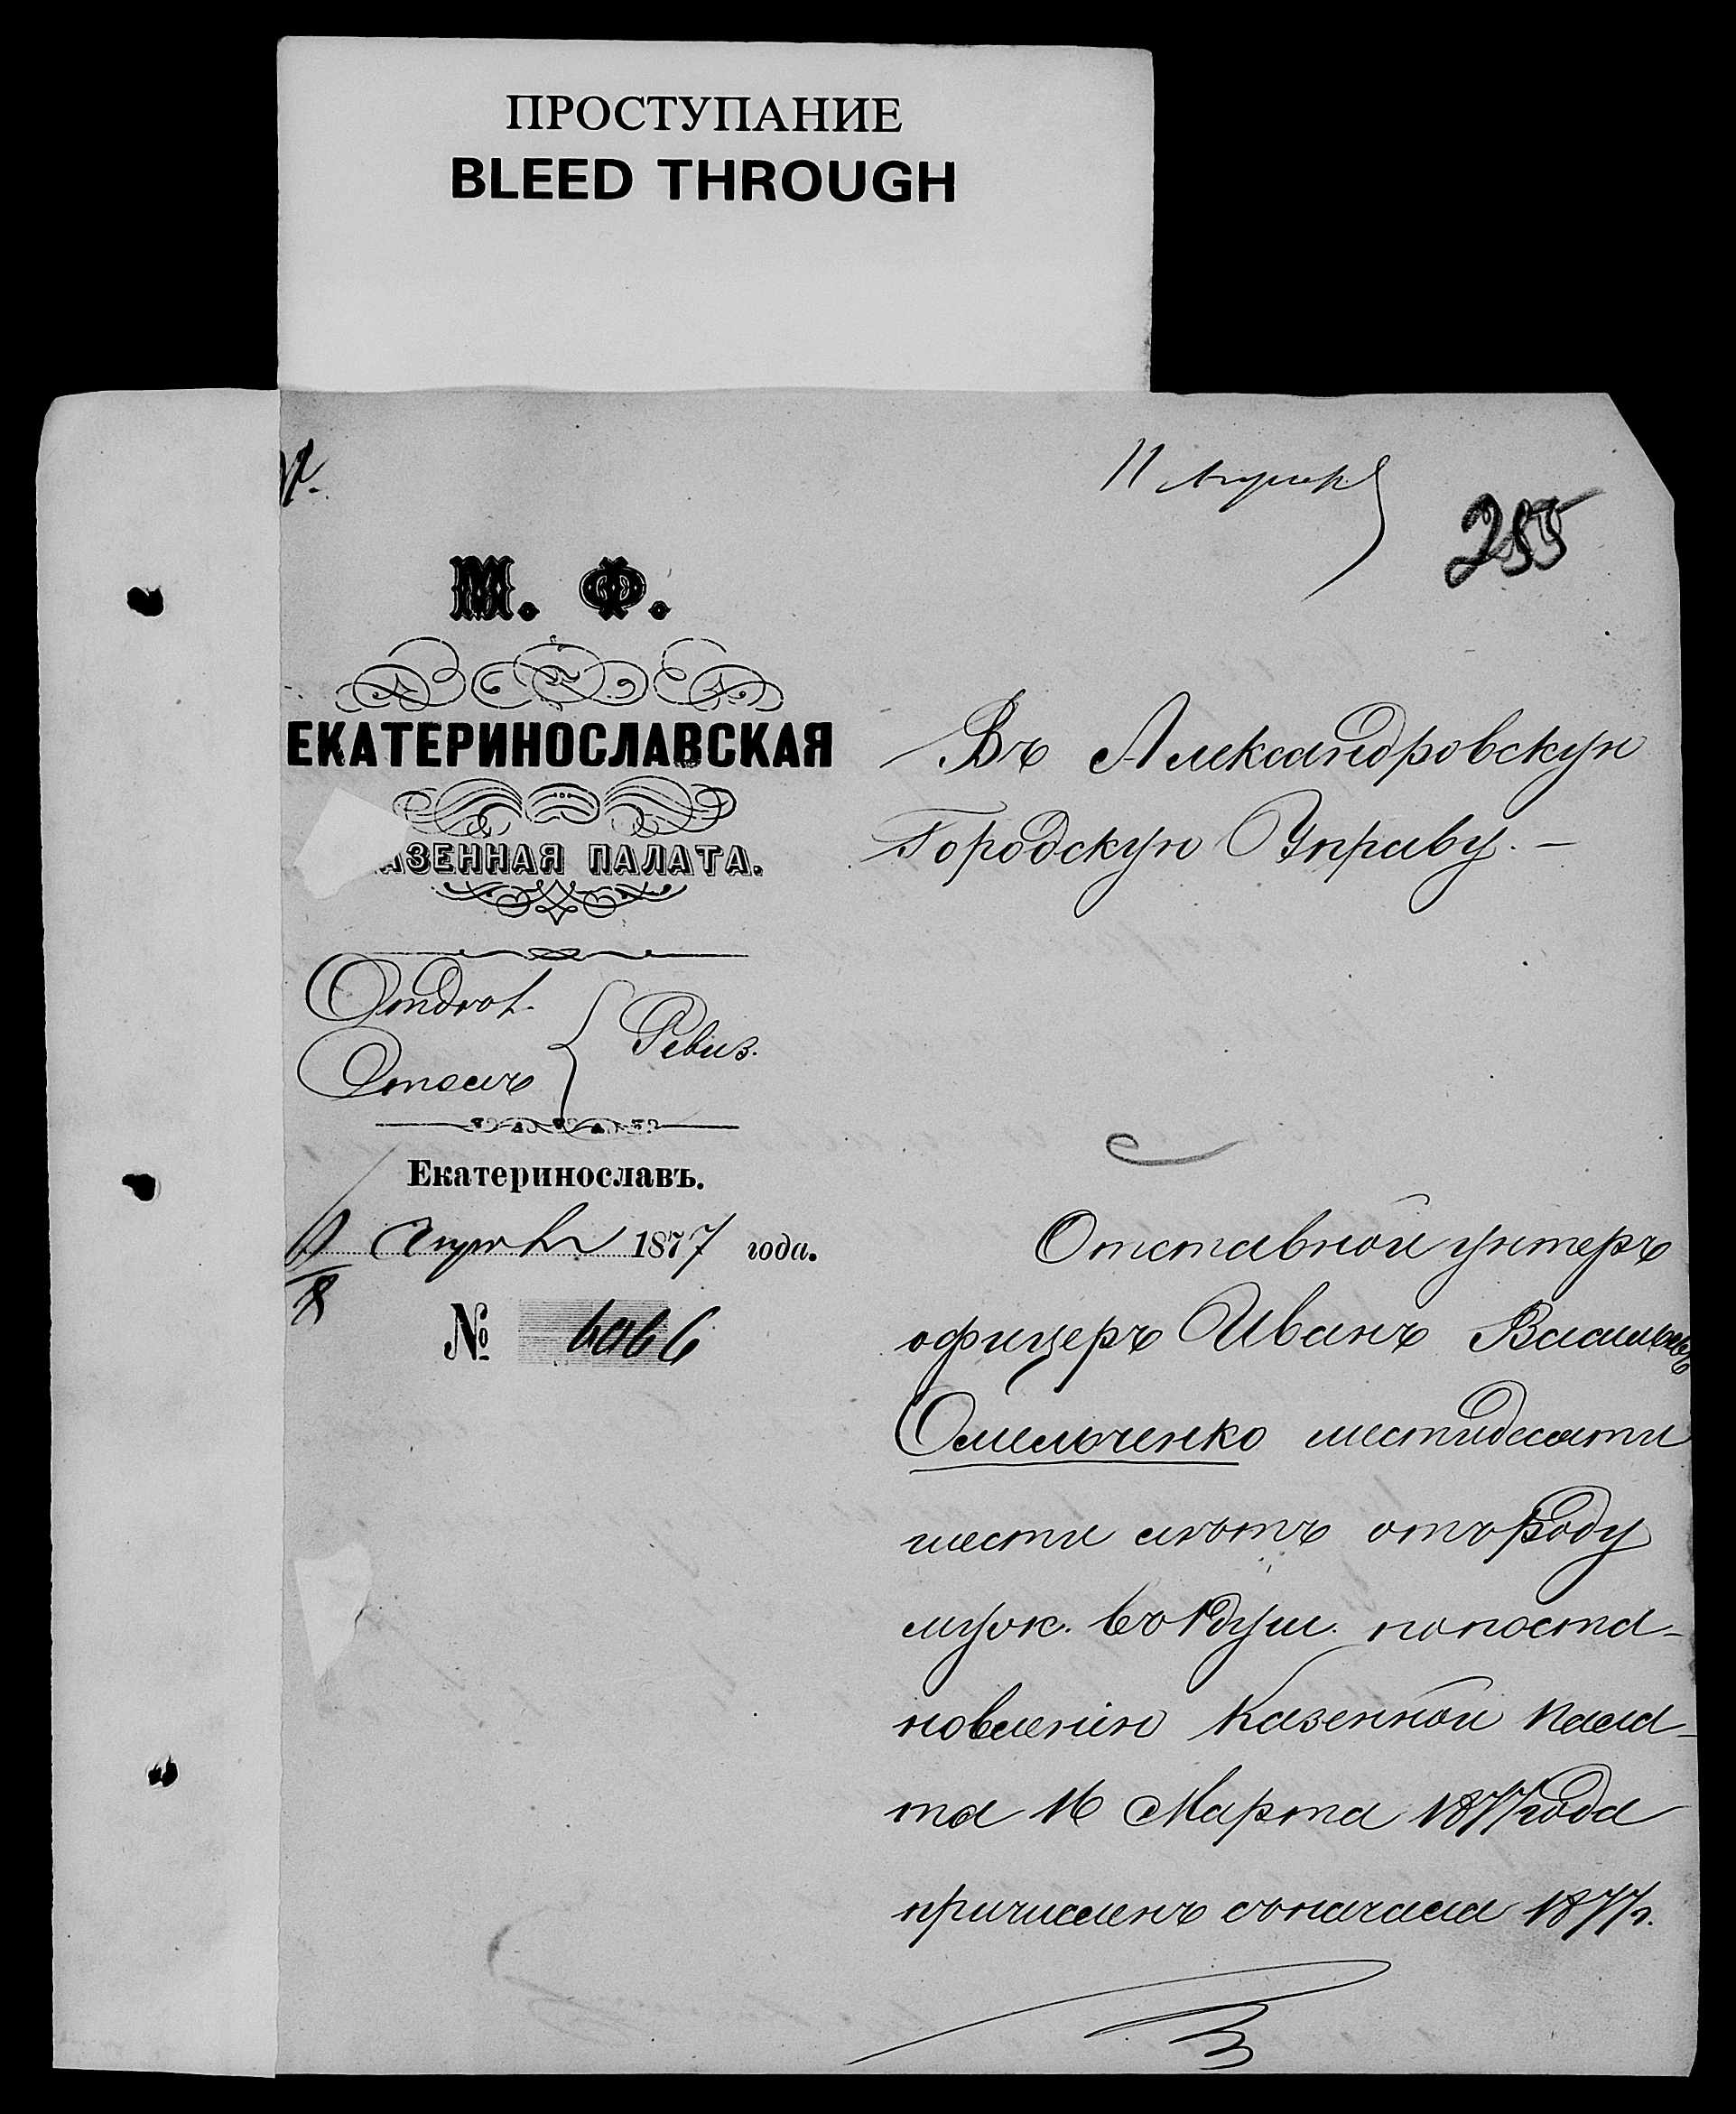 ПРОСТУПАНИЕ
BLEED THROUGH
11 Апрѣл
255
М. Ф.
ЕКАТЕРИНОСЛАВСКАЯ
АЗЕННАЯ ПАЛАТА.
Отдѣл.
Столъ
Ревиз.
Екатеринославъ.
Апрѣля 1877 года.
№ 6066
Въ Александровскую
Городскую Управу. —
Отставной унтеръ
офицеръ Иванъ Васильевъ
Омельченко шестидесяти
шести лѣтъ отъ роду
муж. въ 1 душ. по поста-
новленію Казенной Пала-
та 16 Марта 1877 года
причисленъ съ начала 1877 г.